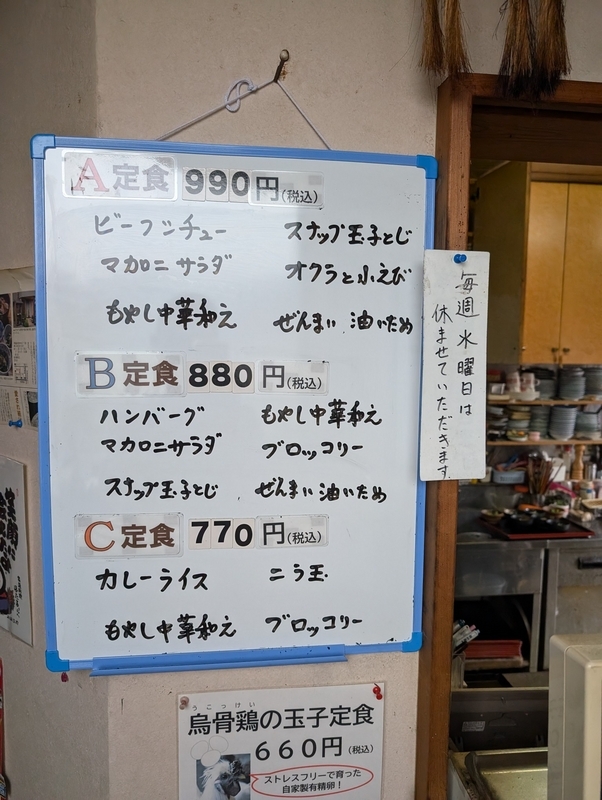 A定食 990円(税込)
ビーフシチュー スナップ玉子とじ
マカロニサラダ オクラと小えび
もやし中華和え ぜんまい 油いため
B定食 880円(税込)
ハンバーグ もやし中華和え
マカロニサラダ ブロッコリー
スナップ玉子とじ ぜんまい油いため
C定食 770円(税込)
カレーライス ニラ玉
もやし中華和え ブロッコリー
毎週水曜日は
休ませていただきます
うこっけい
烏骨鶏の玉子定食
660円(税込)
ストレスフリーで育った
自家製有精卵!